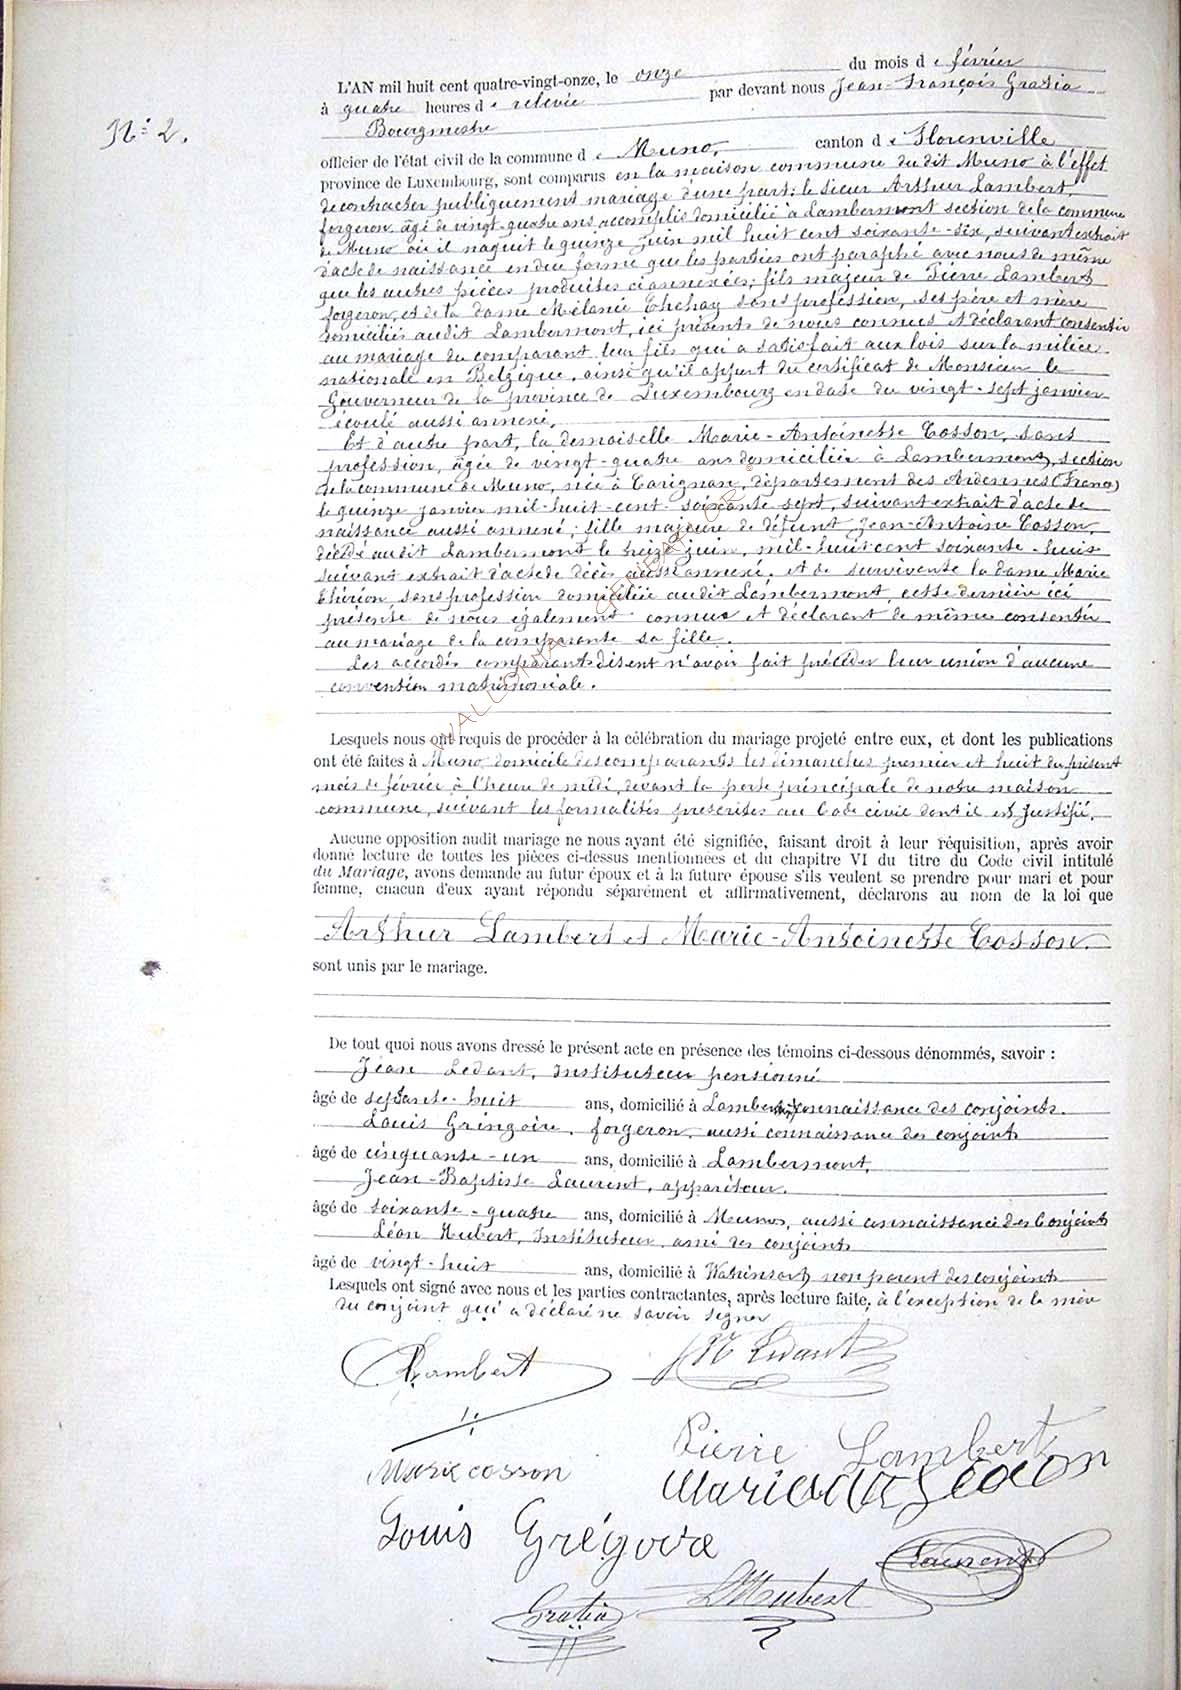 N° 2.
L'AN mil huit cent quatre-vingt-onze, le onze du mois de février
à quatre heures de relevée par devant nous Jean-François Gratia
Bourgmestre
officier de l'état civil de la commune de Muno, canton de Florenville
province de Luxembourg, sont comparus en la maison commune du dit Muno à l'effet
de contracter publiquement mariage d'une part: le sieur Arthur Lambert,
forgeron, âgé de vingt-quatre ans accomplis domicilié à Lambermont section de la commune
de Muno où il naquit le quinze juin mil huit cent soixante-six, suivant extrait
d'acte de naissance en due forme que les parties ont paraphé avec nous de même
que les autres pièces produites ci annexées; fils majeur de Pierre Lambert
forgeron, et de la dame Mélanie sans profession, ses père et mère
domiciliés audit Lambermont, ici présents de nous connus et déclarant consentir
au mariage du comparant leur fils qui a satisfait aux lois sur la milice
nationale en Belgique, ainsi qu'il appert du certificat de Monsieur le
Gouverneur de la province de Luxembourg en date du vingt-sept janvier
écoulé aussi annexé.
Et d'autre part, la demoiselle Marie-Antoinette Cosson, sans
profession, âgée de vingt-quatre ans domiciliée à Lambermont, section
de la commune de Muno, née à Carignan, département des Ardennes (France)
le quinze janvier mil-huit-cent-soixante-sept, suivant extrait d'acte de
naissance aussi annexé; fille majeure de défunt Jean-Antoine Cosson,
décédé audit Lambermont le treize juin, mil-huit cent soixante-huit
suivant extrait d'acte de décès aussi annexé, et de survivante la dame Marie
Thirion, sans profession domiciliée audit Lambermont, cette dernière ici
présente de nous également connue et déclarant de même consentir
au mariage de la comparante sa fille.
Les accordés comparants disent n'avoir fait précéder leur union d'aucune
convention matrimoniale.
Lesquels nous ont requis de procéder à la célébration du mariage projeté entre eux, et dont les publications
ont été faites à Muno, domicile des comparants les dimanches premier et huit du présent
mois de février à l'heure de midi, devant la porte principale de notre maison
commune, suivant les formalités prescrites au Code civil dont il est justifié,
Aucune opposition audit mariage ne nous ayant été signifiée, faisant droit à leur réquisition, après avoir
donné lecture de toutes les pièces ci-dessus mentionnées et du chapitre VI du titre du Code civil intitulé
du Mariage, avons demandé au futur époux et à la future épouse s'ils veulent se prendre pour mari et pour
femme, chacun d'eux ayant répondu séparément et affirmativement, déclarons au nom de la loi que
Arthur Lambert et Marie-Antoinette Cosson.
sont unis par le mariage.
De tout quoi nous avons dressé le présent acte en présence des témoins ci-dessous dénommés, savoir :
Jean Ledant, Instituteur pensionné
âgé de septante-huit ans, domicilié à Lambermont, connaissance des conjoints.
Louis Gringoire, forgeron, aussi connaissance des conjoints
âgé de cinquante-un ans, domicilié à Lambermont,
Jean-Baptiste Laurent, appariteur.
âgé de soixante-quatre ans, domicilié à Muno, aussi connaissance des Conjoints
Léon Hubert, Instituteur, ami des conjoints
âgé de vingt-huit ans, domicilié à non parent des conjoints
Lesquels ont signé avec nous et les parties contractantes, après lecture faite, à l'exception de la mère
du conjoint qui a déclaré ne savoir signer
Lambert
Ledant
Pierre Lambert
Marie cosson
Louis Grégoire
Laurent
LHubert
Gratia